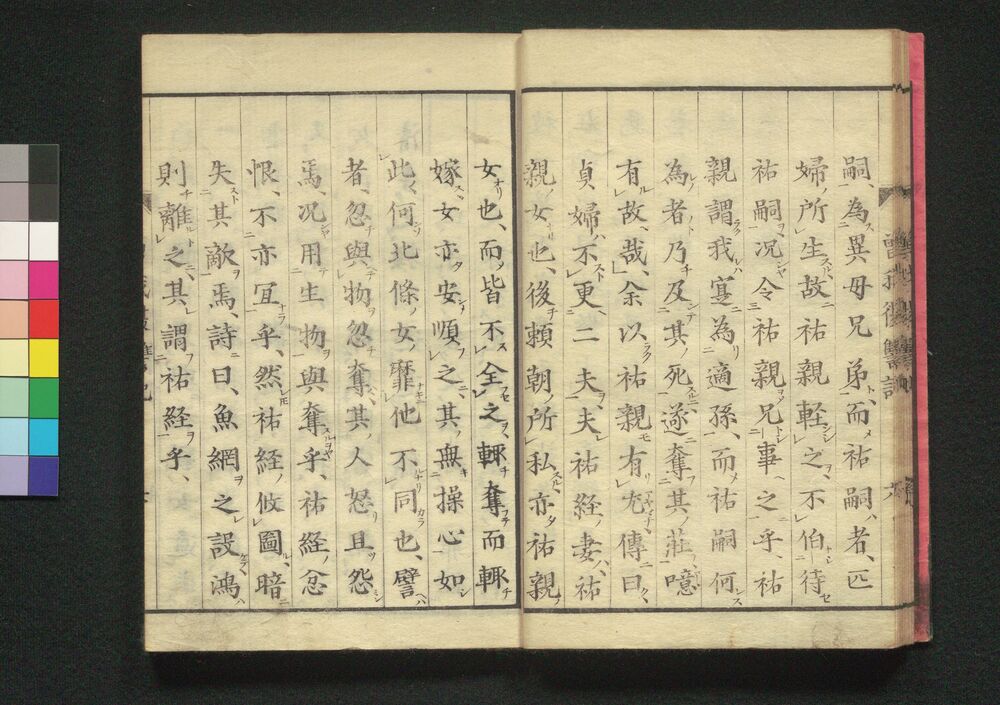 嗣、為異母兄弟、而祐嗣者、匹
婦所生故、祐親軽之、不伯待
祐嗣、況令祐親兄事之乎、祐
親謂我寔為適孫、而祐嗣何
為者、乃及其死、遂奪其莊、噫
有故哉、余以祐親有尤、傳曰、
貞婦不更二夫、夫祐経妻、祐
親女也、後頼朝所私、亦祐親
女也、而皆不全之、輙奪而輙
嫁、女亦安順之、其無操心如
此、何北條女、靡他不同也、譬
者、忽與物忽奪、其人怒且怨
焉、況用生物與奪乎、祐経忿
恨、不亦宜乎、然祐経攸圖、暗
失其敵焉、詩曰、魚網之設、鴻
則離之、其謂祐経乎、